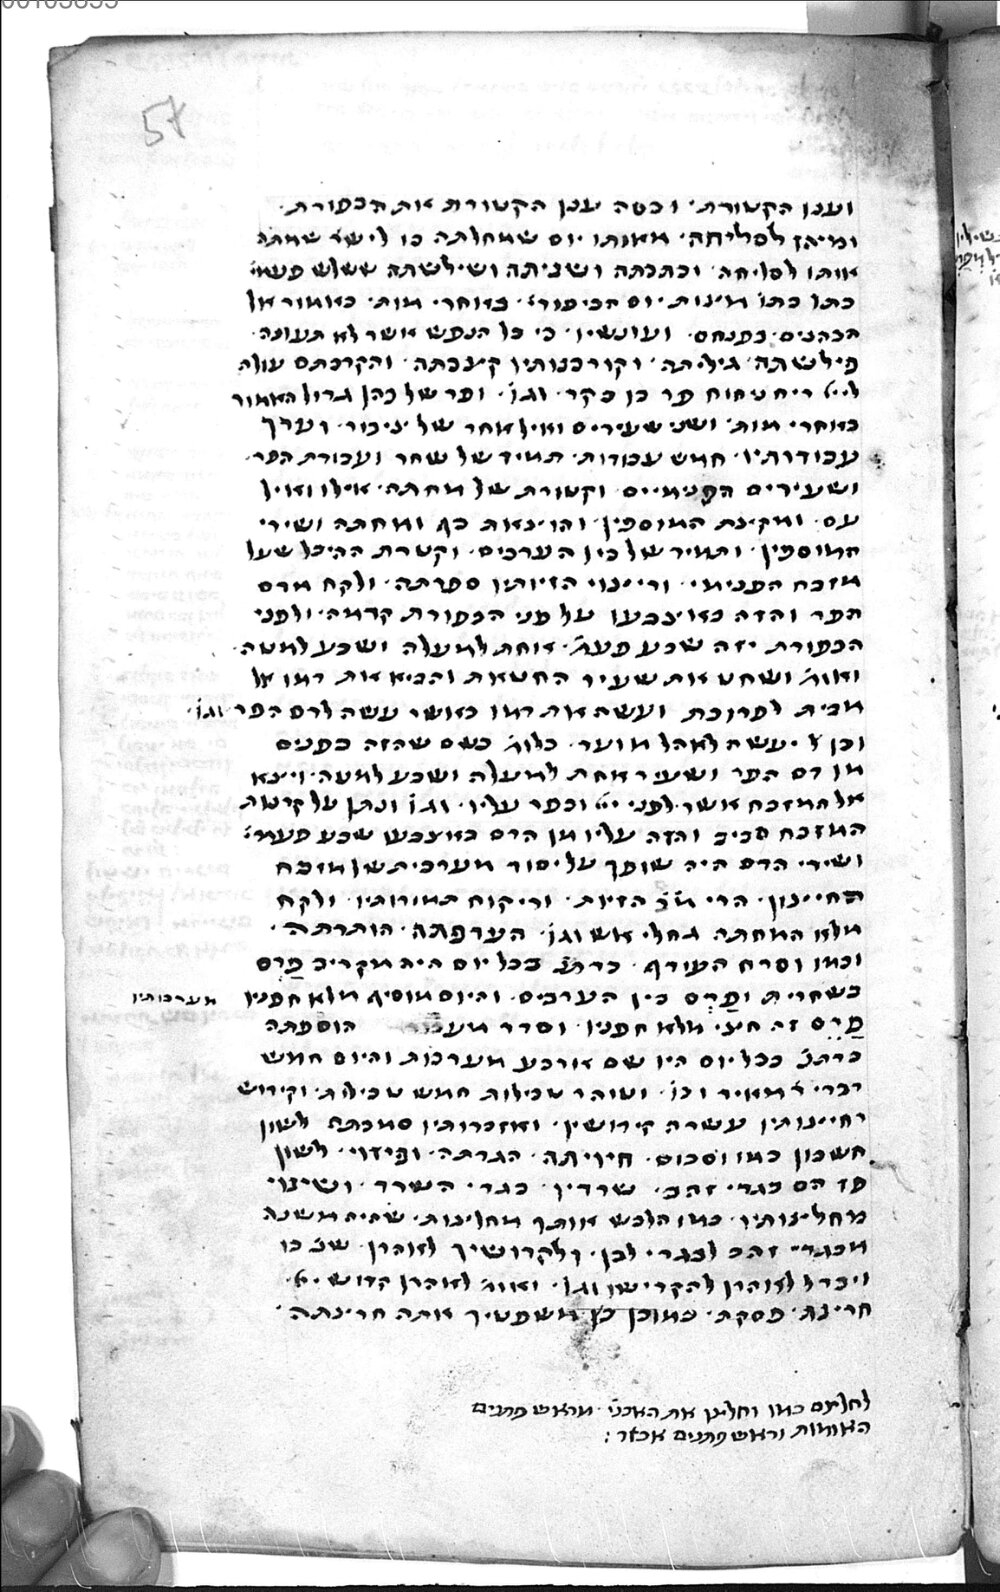 57
וענן הקטורת׳ וכסה ענן הקטורת את הכפורת׳
ומיהן לסליחה׳ מאותו יום שמחלתה בו לישר׳ שמתה
אותו לסליחה׳ וכתבתה ושניתה ושילשתה ששלש פעמ׳
כתו כתו׳ מצות׳ יום הכיפור׳׳ באחרי׳ מות׳ באמור אל
הכהנים׳ בפנחס׳ ועונשיו׳ כי כל הנפש אשר לא תעונה׳
פילשתה׳ גיליתה׳ וקורבנותיו קיצבתה׳ והקרבתם עולה
לייי ריח ניחוח פר בן בקר׳ וגו׳׳ ופר של כהן גדול האמור
באחרי׳ מות׳ ושני שעירים ואיל אחד של ציבור׳ וערך
עבודותיו׳ חמש עבודות׳ תמיד של שחר ועבודת הפר׳
ושעירים הפנימיים׳ וקטורת של מחתה׳ אילו ואיל
עם׳ ומקצת המוספין׳ והוצאות כף ומחתה ושירי
המוספין׳ ותמיד של בין הערבים׳ וקטרת ההיכל שעל
מזבח הפנימי׳ וריצוי הזיותיו ספרתה׳ ולקח מדם
הפר והזה באצבעו על פני הכפורת קדמה׳ ולפני
הכפורת יזה שבע פעמ׳ אחת למעלה ושבע למטה׳
ואומ׳ ושחט את שעיר החטאת והביא את דמו אל
מבית לפרוכת ועשה את דמו כאשר עשה לדם הפר וגו׳
וכן יעשה לאהל מועד׳ כלומ׳ כשם שהזה בפנים
מן דם הפר ושעיר אחת למעלה ושבע למטה׳ ויצא
אל המזבח אשר לפני ייי וכפר עליו׳ וגו׳ ונתן על קרנות
המזבח סביב והזה עליו מן הדם באצבעו שבע פעמי׳
ושירי הדם היה שופך על יסוד מערבית של מזבח
החיצון׳ הרי מ׳׳ג הזיות׳ וריקוח תמורותיו׳ ולקח
מלא המחתה גחלי אש וגו׳׳ הערפתה׳ הותרתה׳
וכמו וסרח העודף׳ כדת׳׳נ בכל יום היה מקריב פרס
בשחרית ופרס בין הערבים׳ והיום מוסיף מלא חפניו
פרס זה חצי׳ מלא חפניו׳ וסדר מערכותיו הוספתה
כדתנ׳ בכל יום היו שם ארבע מערכות והיום חמש
דברי ר׳ מאיר וכו׳׳ וטוהר טבילות חמש טבילות׳ וקידוש
רחיצותיו עשרה קידושין׳ ואזכרותיו סמכתה לשון
חשבון כמו וסכום׳ חיויתה׳ הגדתה׳ ופידוי׳ לשון
פז הם בגדי׳ זהב׳ שרדיו׳ בגדי׳ השרד׳ ושינוי
מחליצותיו׳ כמו הלבש אותך מחלצות׳ שהיה משנה
מבגדי׳ זהב לבגדי׳ לבן׳ ולקדושיך לאהרן׳ שנ׳ בו
ויבדל לאהרן להקדישו וגו׳׳ ואומ׳ לאהרן קדוש ייי׳
חריצת׳ פסקת׳ כמו כן כן משפטיך אתה חריצתה׳
לחלצם כמו וחלצו את האבני׳ מראש פתנים
האומות וראש פתנים אכזר׃